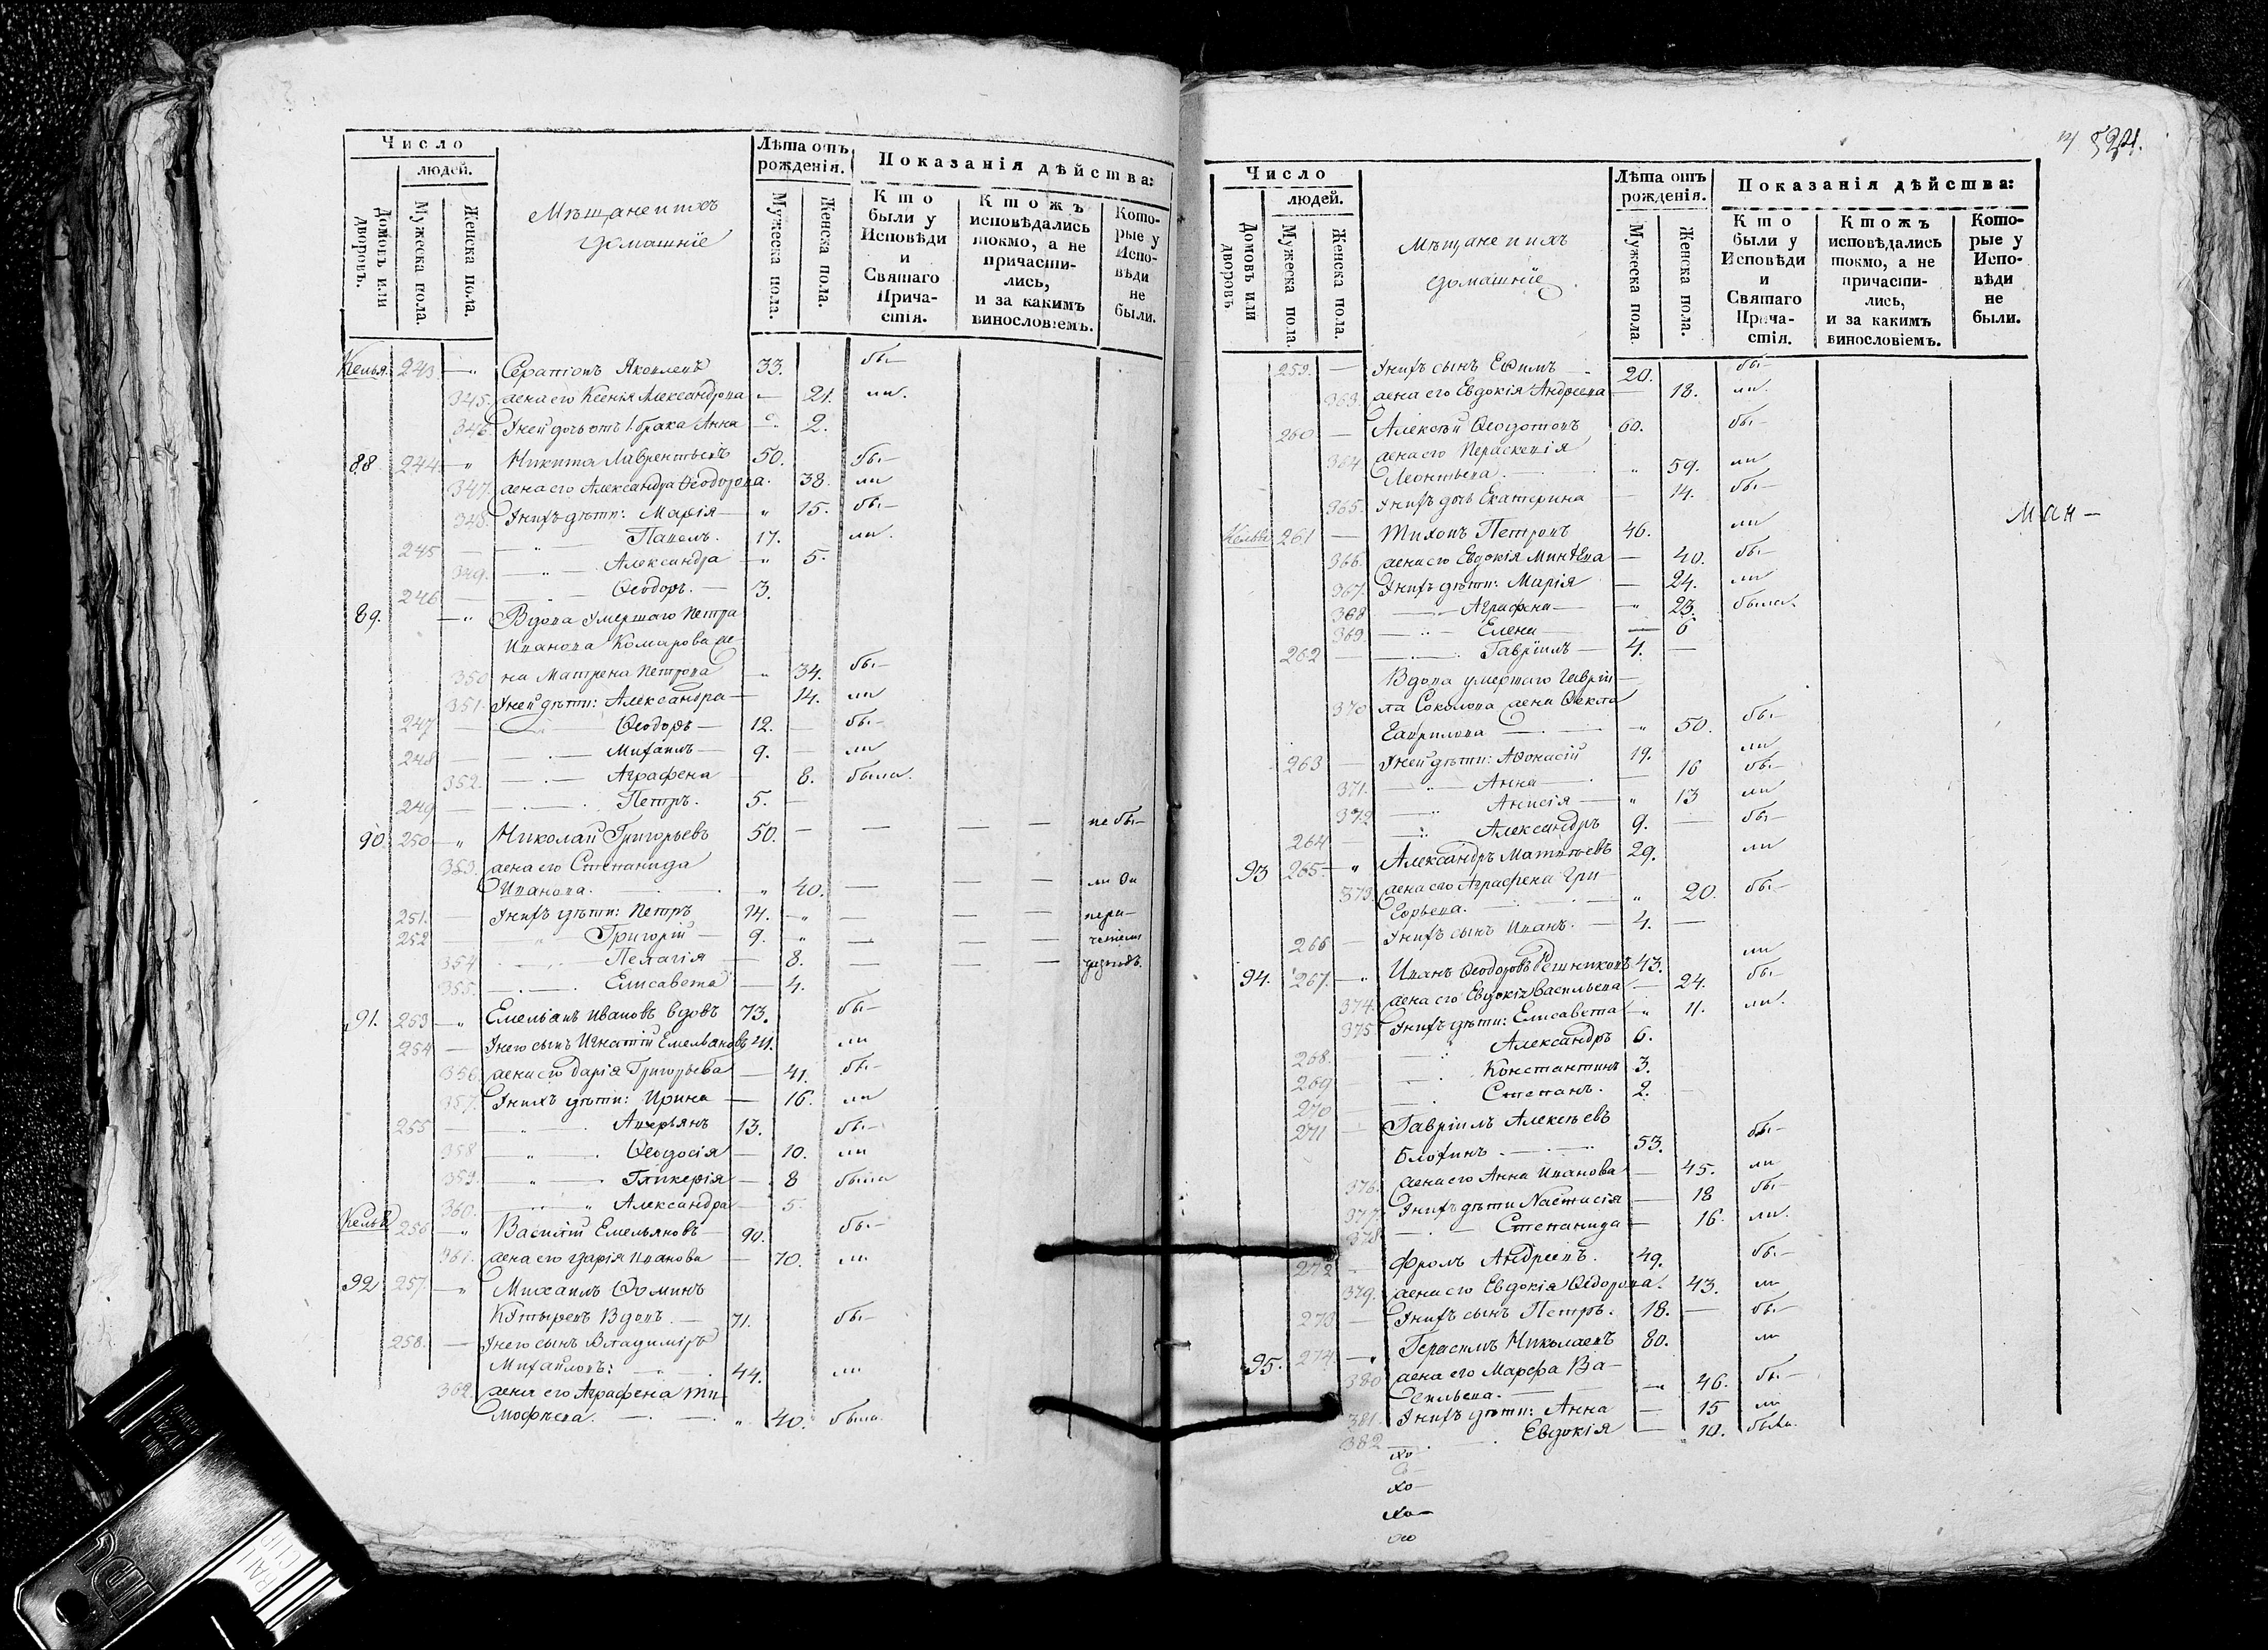 Число
людей.
Домовъ или дворовъ.
Мужеска пола.
Женска пола.
Мѣщане и ихъ
домашніе
Лѣта отъ рожденія.
Мужеска пола.
Женска пола.
Показанія дѣйства:
Кто были у Исповѣди и Святаго Причастія.
Ктожъ исповѣдались токмо, а не причастились, и за какимъ винословіемъ.
Которые у Исповѣди не были.
Келья. 243 — Серапіонъ Яковлевъ 33. бы—
345. жена его Ксенія Александрова — 21. ли.
346 У ней дочь отъ 1. брака Анна — 2.
88 244 — Никита Лаврентьевъ 50. бы—
347. жена его Александра Ѳеодорова. 38. ли
348. У нихъ дѣти: Марія — 15. бы—
245 — Павелъ. 17. ли.
349. — Александра — 5.
246 — Ѳеодоръ. — 3.
89. — Вдова умершаго Петра
Иванова Комарова же-
350 на Матрена Петрова 34. бы—
351. У ней дѣти: Александра — 14. ли
247 — Ѳеодоръ — 12. — бы—
248 — Михаилъ — 9. — ли
352. — Аграфена 8. была.
249 — Петръ. 5. —
90 250 — Николай Григорьевъ 50. — — — — не бы—
353. жена его Степанида
Иванова. 40. — — ли
251. — У нихъ дѣти: Петръ 14. — — — —
252 — Григорій — 9. — — —
354 — Пелагія — 8. — — —
355. — Елисавета — 4.
91. 253 — Емельянъ Ивановъ вдовъ 73. бы—
254 — У него сынъ Игнатій Емельяновъ 41. ли
356. жена его Дарія Григорьева — 41. бы—
357. У нихъ дѣти: Ирина — 16. ли
255 — Аверьянъ 13. бы—
358 — Ѳеодосія — 10. ли
359. — Гликерія — 8 была
360. — Александра — 5.
Келья 256 — Василій Емельяновъ — 90. бы—
361. жена его Дарія Иванова — 70. ли
92 257 — Михаилъ Ѳоминъ
вдовъ. — 71. бы—
258. — У него сынъ Владиміръ
Михайловъ: 44. ли
362. жена его Аграфена Ти-
мофѣева. — 40. была.
524.
Число
людей.
Домовъ или дворовъ
Мужеска пола.
Женска пола.
Мѣщане и ихъ
домашніе
Лѣта отъ рожденія.
Мужеска пола
Женска пола.
Показанія дѣйства:
Кто были у Исповѣди и Святаго Причастія.
Ктожъ исповѣдались токмо, а не причастились, и за какимъ винословіемъ.
Которые у Исповѣди не были.
259. — У нихъ сынъ Ефимъ 20. бы—
363. жена его Евдокія Андреева — 18. ли
260 — Алексѣй Ѳеодотовъ 60. бы—
364 жена его Параскевія
Леонтьева. 59. ли
365. У нихъ дочь Екатерина — 14. бы—
Келья 261 — Тихонъ Петровъ 46. ли
366. жена его Евдокія — 40. бы—
367. У нихъ дѣти: Марія — 24. ли
368 — Аграфена — 23. была.
369 — Елена — 6
262 — Гавріилъ — 4. —
Вдова умершаго Гаврі-
370 ла Соколова жена Ѳекла
Гаврилова — 50. бы—
263 — У ней дѣти: Аѳонасій 19. ли
371. — Анна — 16 бы—
372 — Анисія — 13 ли
264 — Александръ 9. — бы—
93 265. — Александръ Матвѣевъ 29. ли
373. жена его Аграфена Гри-
горьева. — 20. бы—
266 — У нихъ сынъ Иванъ. — 4. —
94. 267. — Иванъ Ѳеодоровъ Решниковъ 43. ли
374. жена его Евдокія Васильева — 24. бы—
375 У нихъ дѣти: Елисавета — 11. ли.
268. — Александръ 6.
269 — Константинъ 3.
270 — Степанъ. 2. —
271 — Гавріилъ Алексѣевъ
Блохинъ. — 53. бы—
376. жена его Анна Иванова — 45. ли
377. У нихъ дѣти Настасія — 18 бы—
378 — Степанида — 16. ли.
272 — Фролъ Андреевъ. 49. бы—
379. жена его Евдокія Ѳедорова. 43. ли
273 — У нихъ сынъ Петръ. 18. — бы—
95. 274. — Герасимъ Николаевъ 80. ли
380 жена его Марфа Ва-
сильева. — 46. бы—
381. У нихъ дѣти: Анна — 15 ли
382 — Евдокія — 10. была.